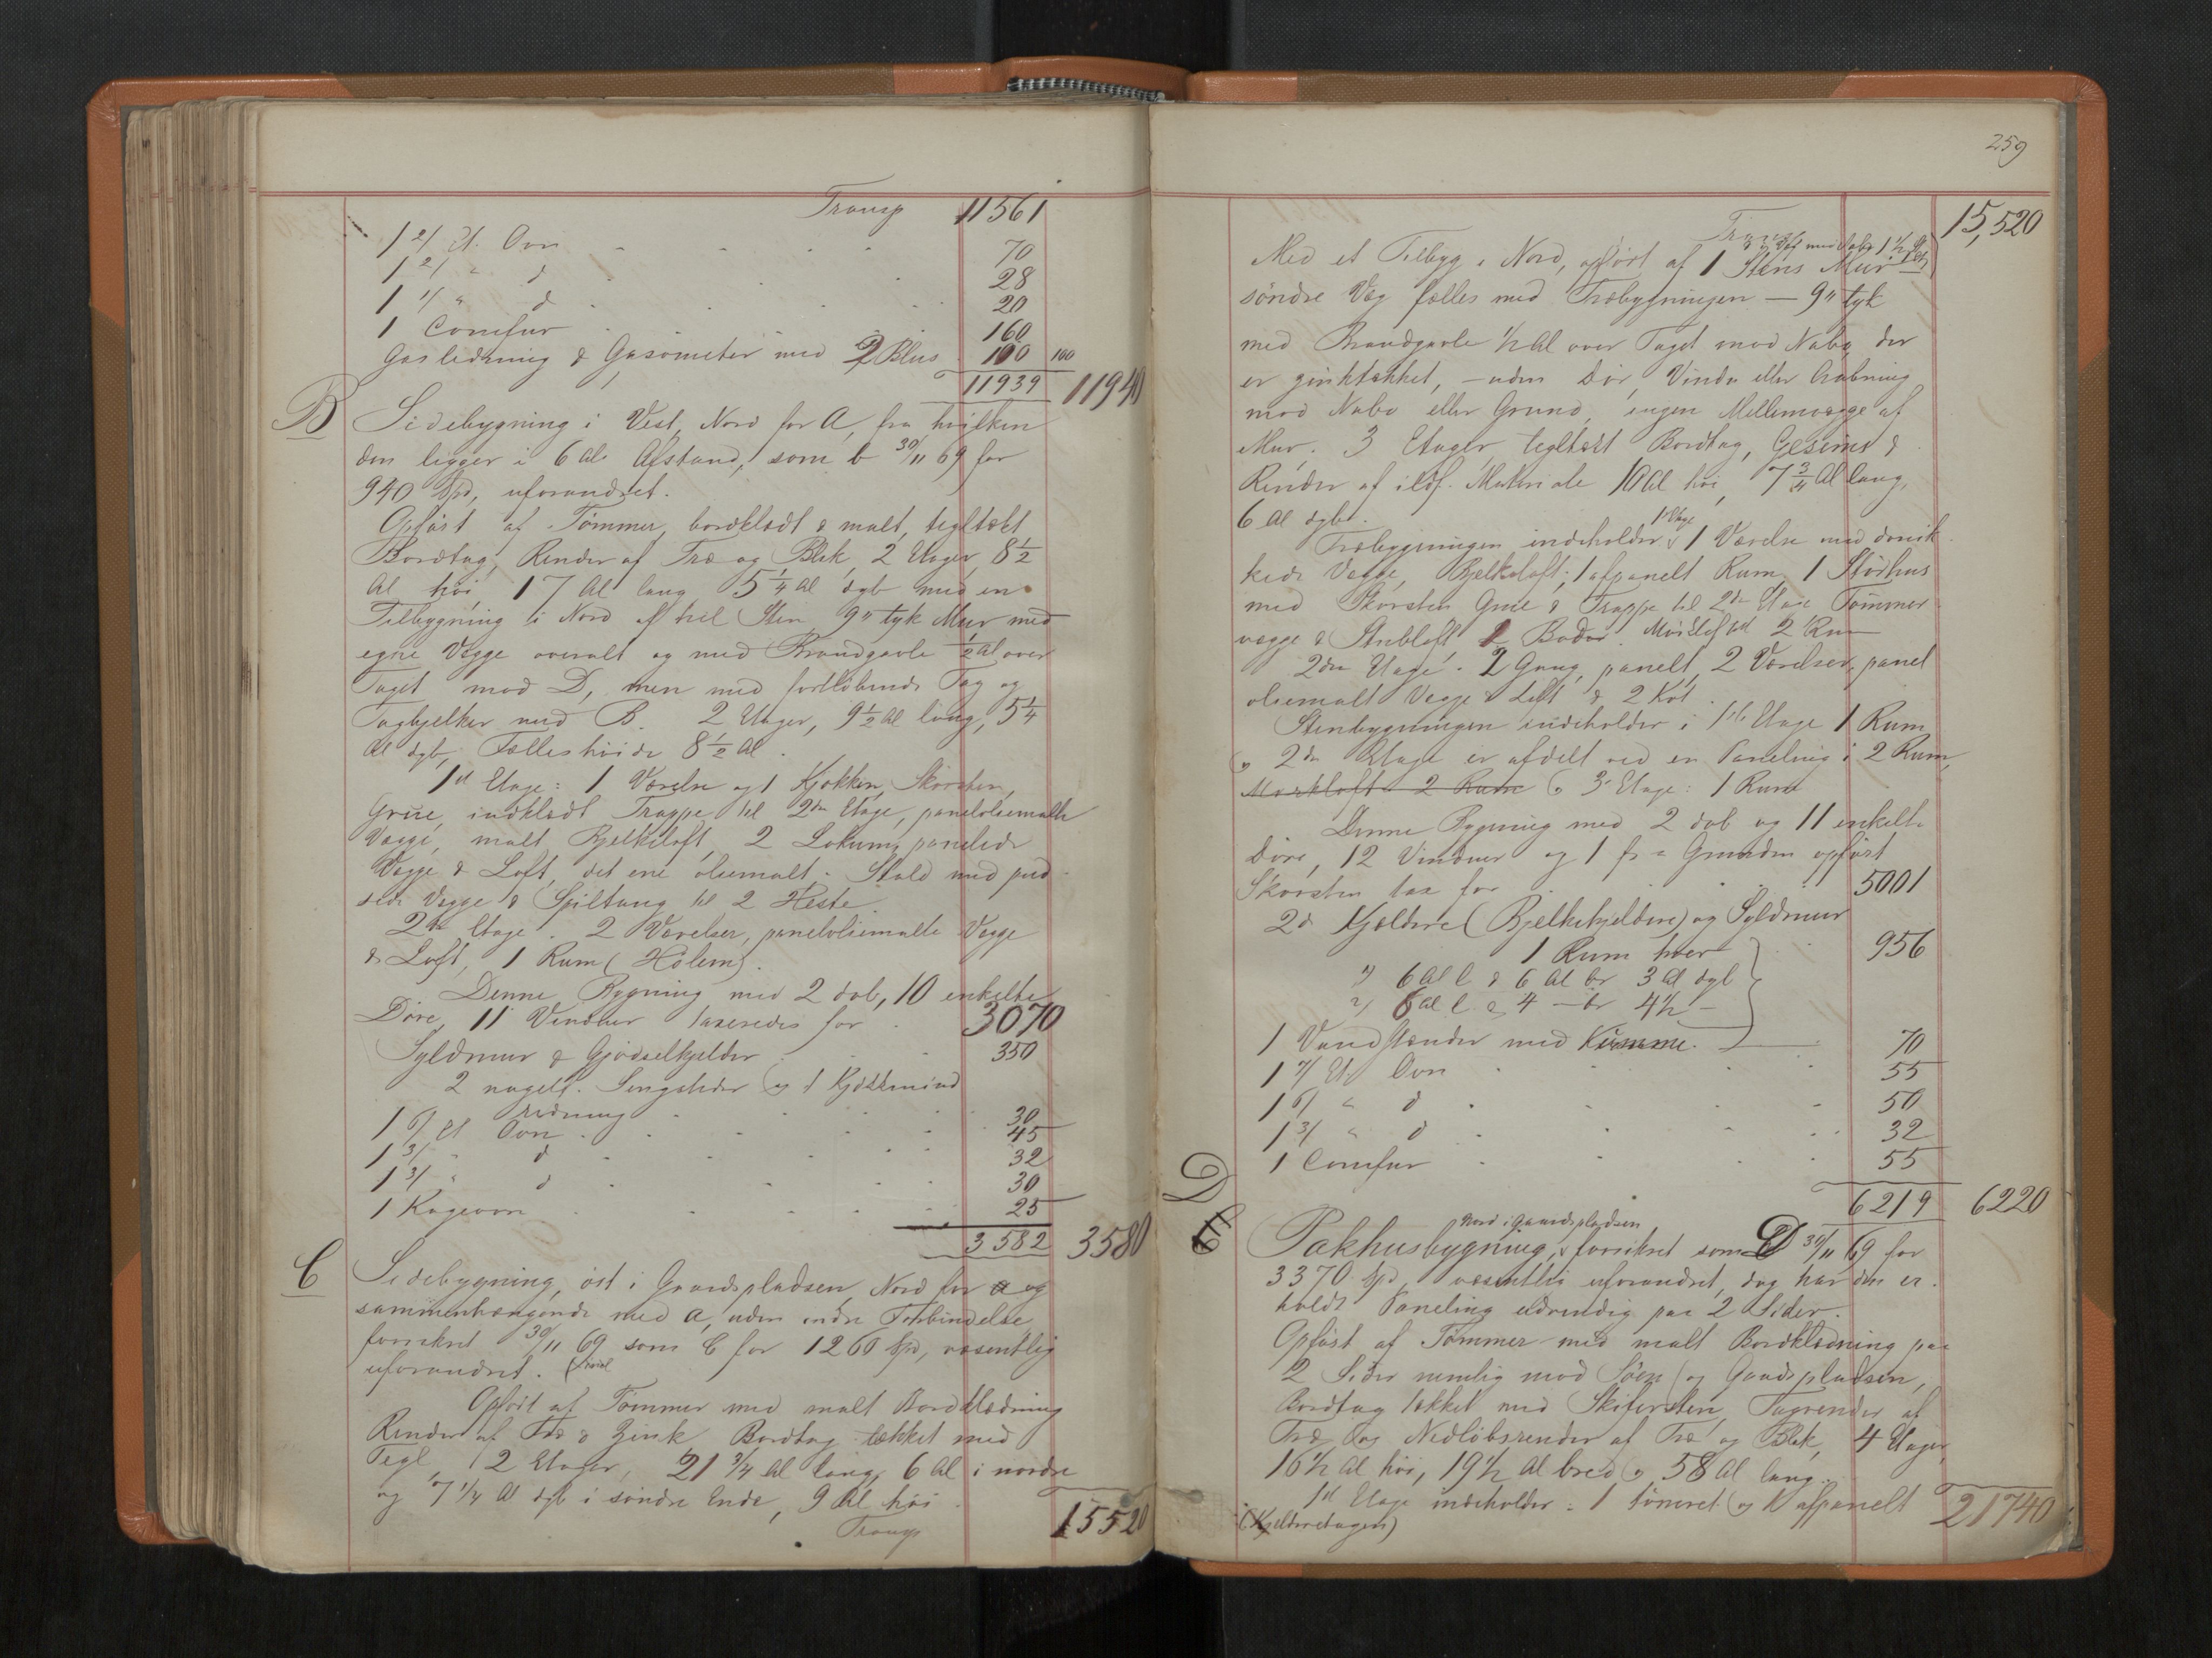 Transp 11561
1 2/ Et. Ovn 70
1 2/ " d 28
1 1/ " d 20
1 Comfur 160
Gasledning & Gasometer med 2 Blus 100 100
11939 11940
B Sidebygning i Vest, Nord for A, fra hvilken
den ligger i 6 Al. Afstand, som b 30/11 69 for
940 Spd, uforandret.
Opført af Tømmer, bordklædt & malt, tegltækt
Bordtag, Render af Træ og Blik, 2 Etager, 8 1/2
Al høi, 17 Al lang 5 1/4 Al dyb med en
Tilbygning i Nord af hel Sten 9" tyk Mur med
egne Vægge overalt og med Brandgavle 1/2 Al over
Taget mod D, men med fortløbende Tag og
Tagbjelker med B. 2 Etager, 9 1/2 Al lang, 5 1/4
Al dyb, Fælleshøide 8 1/2 Al.
1st Etage: 1 Værelse og 1 Kjøkken, Skorsten,
Grue, indklædt Trappe til 2den Etage, paneloliemalte
Vægge, malt Bjelkeloft, 2 Lokums, panelede
Vægge & Loft, det ene oliemalt. Stald med pud
sede Vægge & Spiltaug til 2 Heste.
2den Etage. 2 Værelser, paneloliemalte Vægge
& Loft, 1 Rum (Hølem).
Denne Bygning med 2 dob, 10 enkelte
Døre, 11 Vinduer taxeredes for 3070
Syldmur & Gjødselkjelder 350
2 nagelf. Sengsteder og 1 Kjøkkenind
redning 30
1 6/ Et Ovn 45
1 3/ " d 32
1 3/ " d 30
1 Kogeovn 25
3582 3580
C Sidebygning, øst i Gaardspladsen, Nord for a og
sammenhængende med a, uden indre Forbindelse,
forsikret 30/11 69 som C for 1260 Spd, væsentlig
uforandret.
Opført af Tømmer med malt Bordklædning
Render af Træ & Zink Bordtag tækket med
Tegl, 2 Etager, 21 3/4 Al lang, 6 Al i nordre
og 7 1/4 Al dyb i søndre Ende, 9 Al høi.
Transp 15520
259
Transp 15,520
Med et Tilbyg i Nord, opført af 1 Stens Mur
søndre Væg fælles med Træbygningen — 9" tyk
med Brandgavle 1/2 Al over Taget mod Nabo, der
er zinktækket, - uden Dør, Vindu eller Aabning
mod Nabo eller Grund, ingen Mellemvægge af
Mur. 3 Etager, tegltækt Bordtag, Gesims &
Render af ildf. Materiale 10 Al høi, 7 3/4 Al lang,
6 Al dyb.
1st Etage
Træbygningen indeholder i 1 Værelse med
kede Vægge, Bjelkeloft, 1 afpanelt Rum, 1 Ildhus
med Skorsten Grue & Trappe til 2den Etage Tømmer
vægge & Stubloft, 2 Boder. Mørkloftet 2 Rum
2den Etage. 2 Gang, panelt, 2 Værelser, panel
oliemalt Vægge & Loft & 2 Kot.
Stenbygningen indeholder i 1ste Etage 1 Rum
2den Etage er afdelt ved en Paneling i 2 Rum,
Mørkloft 2 Rum 3de Etage: 1 Rum
Denne Bygning med 2 dob og 11 enkelte
Døre, 12 Vinduer og 1 fra Grunden opført
Skorsten tax for 5001
2de Kjældere (Bjelkekjeldere) og Syldmur
1 Rum hver 956
1) 6 Al l & 6 Al br 3 Al dyb
2) 6 Al l & 4 — br 4 1/2 —
1 Vandstender med Kumme. 70
1 7/ Et Ovn 55
1 6/ " d 50
1 3/ " d 32
1 Comfur 55
6219 6220
D
Nord i Gaardspladsen
Pakhusbygning, forsikret som D 30/11 69 for
3370 Spd, væsentlig uforandret, dog har den er
holdt Paneling udvendig paa 2 Sider.
Opført af Tømmer med malt Bordklædning paa
2 Sider nemlig mod Søen og Gaardspladsen,
Bordtag tækket med Skifersten, Tagrender af
Træ og Nedløbsrender af Træ og Blik, 4 Etager,
16 1/2 Al høi, 19 1/2 Al bred & 58 Al lang.
1st Etage indeholder: 1 tømret og 1 afpanelt 21740
(Kjelderetagen)